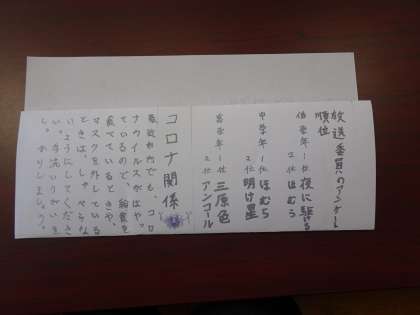 放送委員のアンケート
順位
低学年 1位 夜に駆ける
2位 ほむら
中学年 1位 ほむら
2位 明け星
高学年 1位 三原色
2位 アンコール
コロナ関係
最近市内でも、コロ
ナウイルスがはやっ
ているので、給食を
食べているときや、
マスクを外している
ときは、しゃべらな
いようにしてくださ
い。手洗いうがいを
しっかりしましょう。